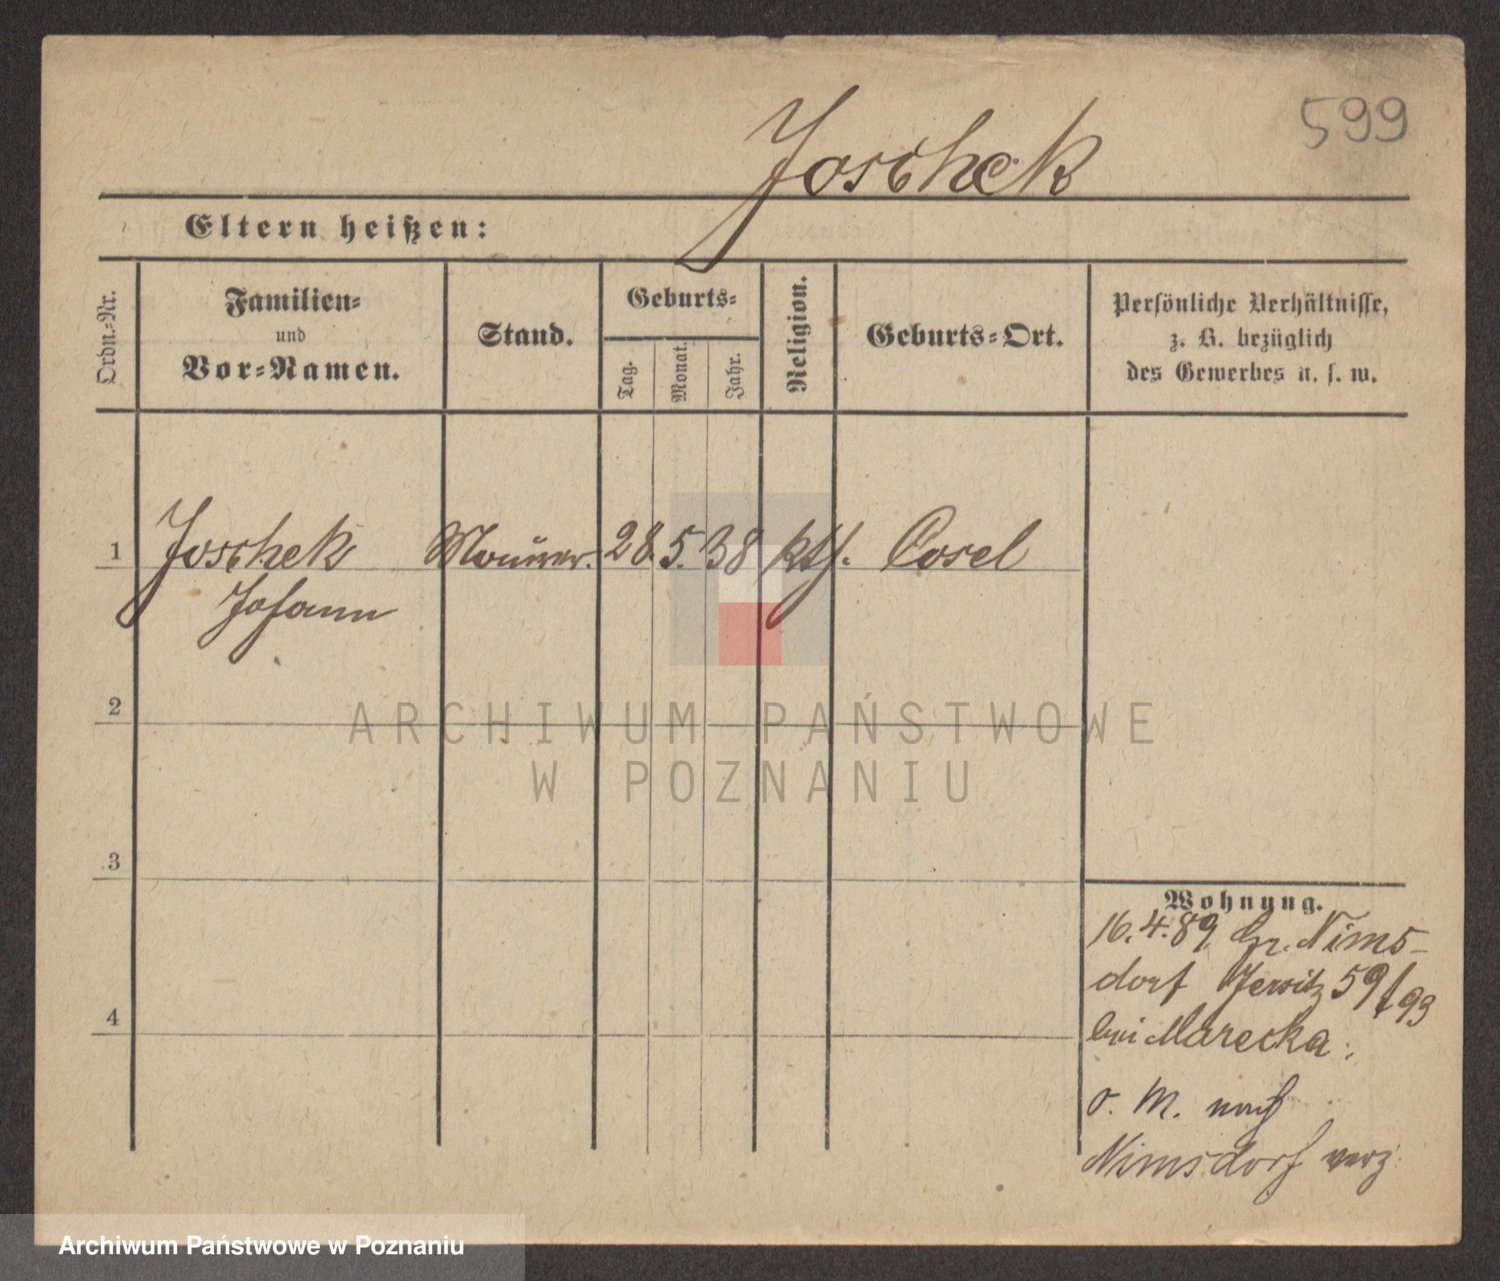 599
Joschek
Eltern heißen:
Ordn.-Nr.
Familien-
und
Vor-Namen.
Stand.
Geburts-
Tag.
Monat.
Jahr.
Religion.
Geburts-Ort.
Persönliche Verhältnisse,
z. B. bezüglich
des Gewerbes u. s. w.
1 Joschek Maurer. 28. 5. 38 kth. Cosel
Johann
2
3
4
Wohnung.
16.4.89. Gr. Nims-
dorf Jersitz 59/93
bei Marecka.
o. M. nach
Nimsdorf verz
ARCHIWUM PAŃSTWOWE
W POZNANIU
Archiwum Państwowe w Poznaniu